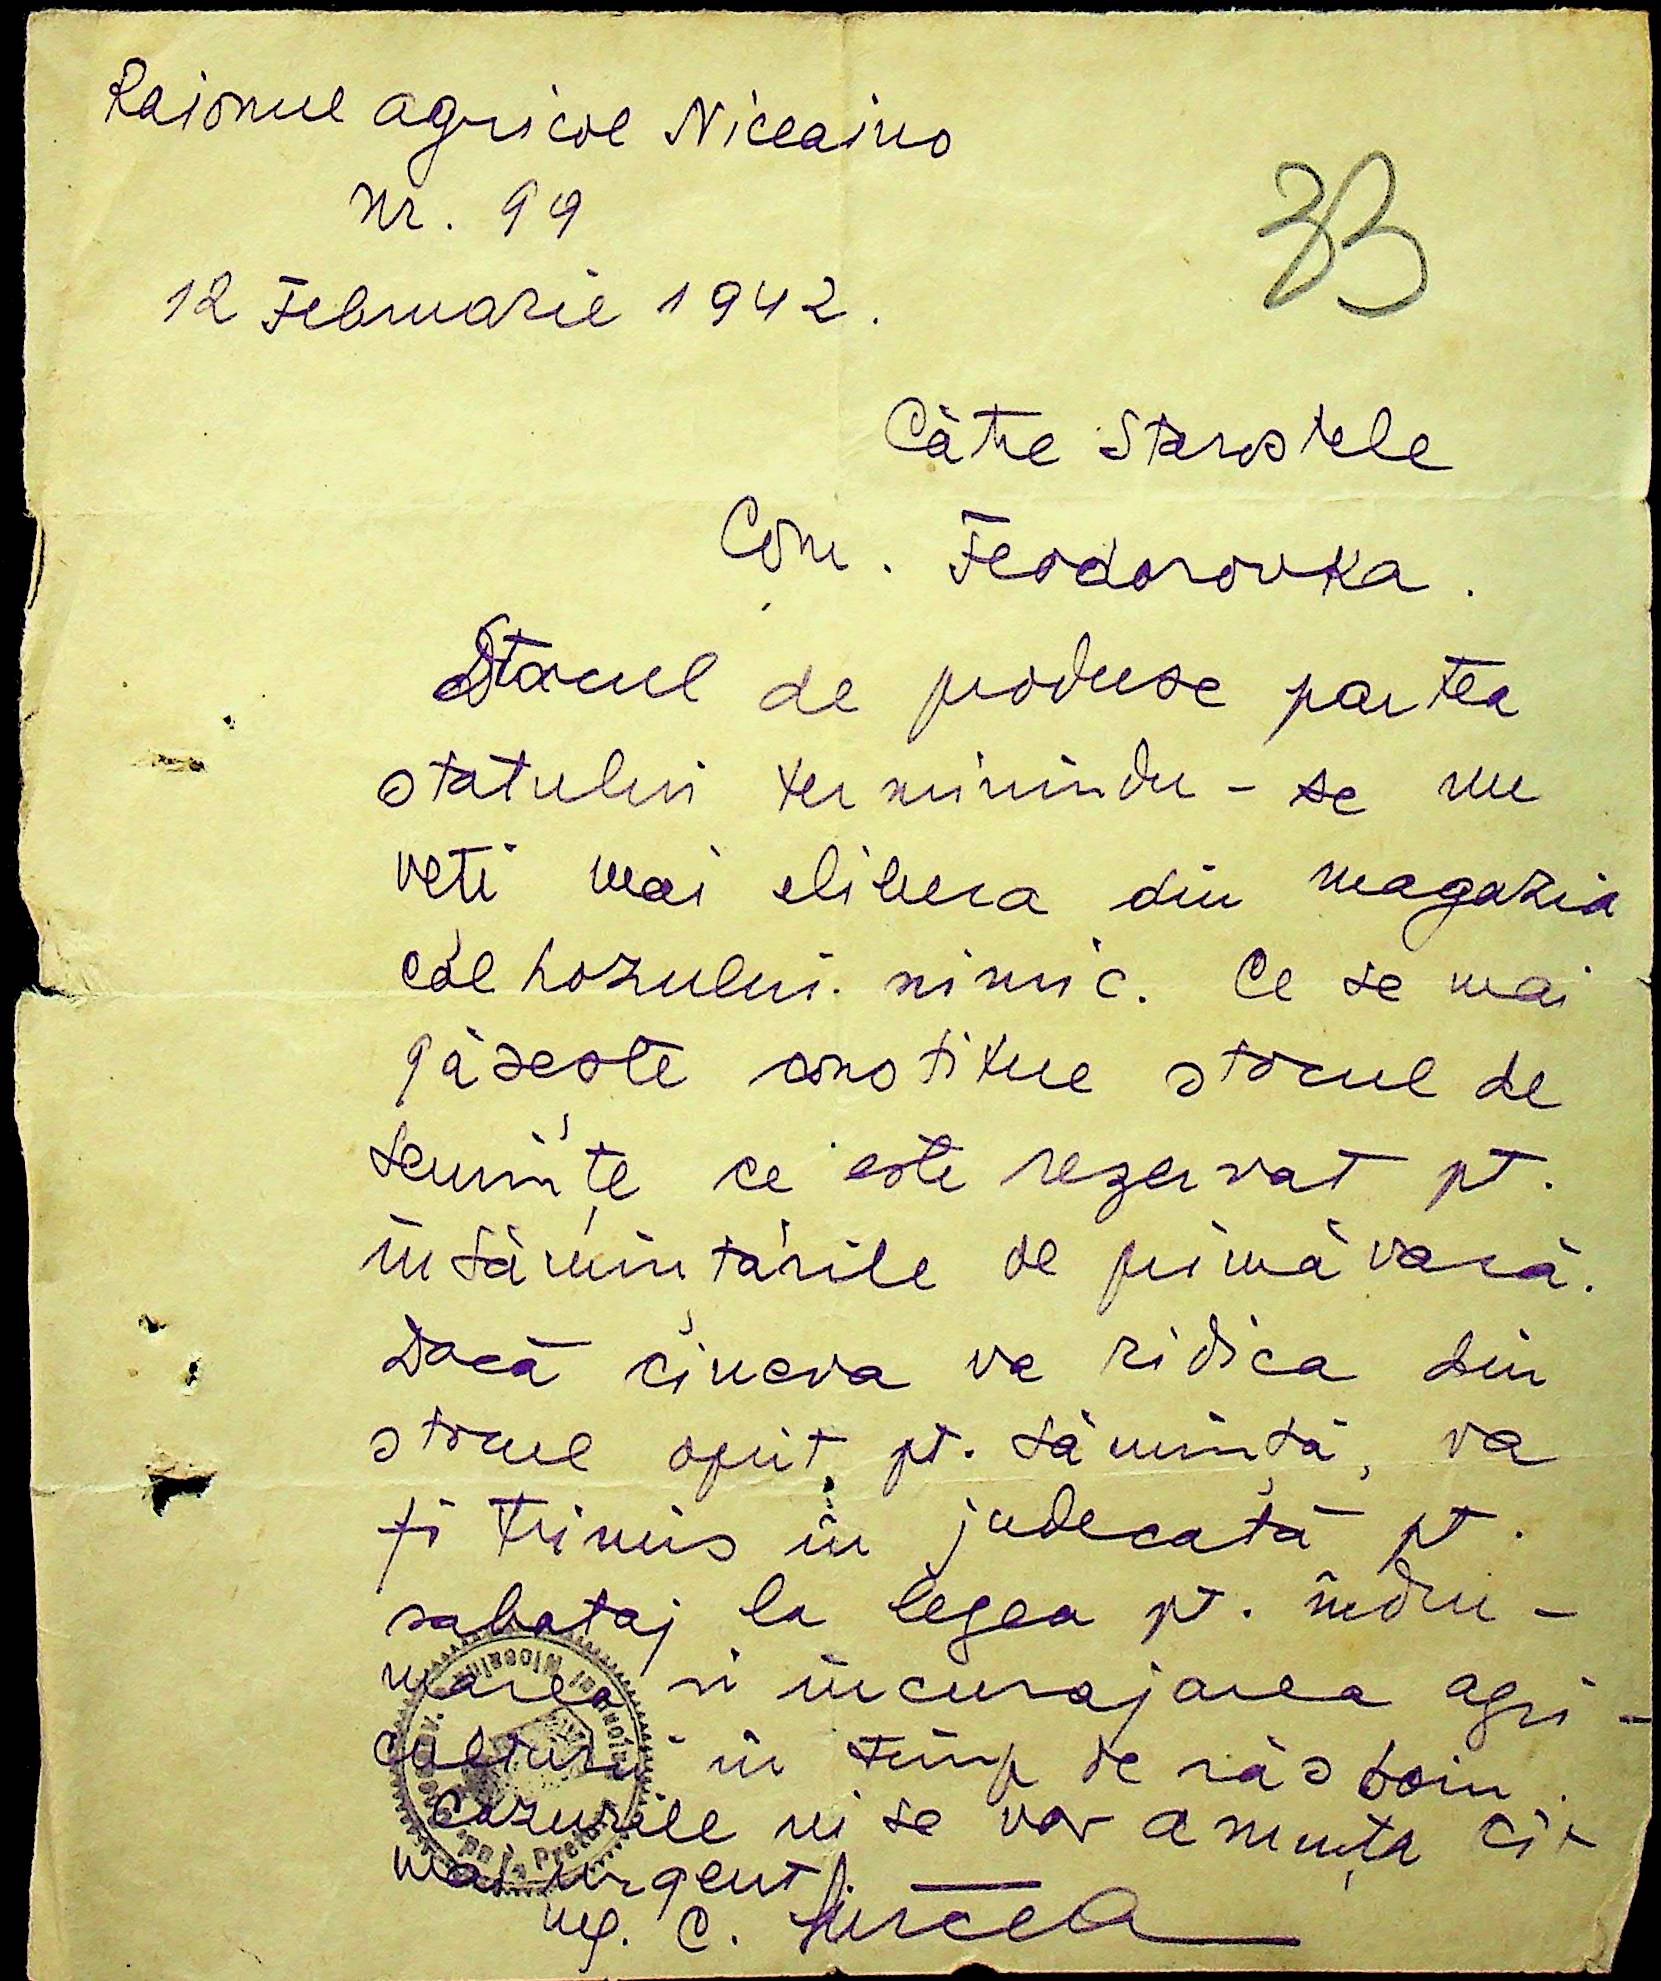 Raionul agricol Nicolaieo
Nr. 99
33
12 Februarie 1942.
Către Starostele
Com. Feodorovka.
Stocul de produse partea
statului terminîndu-se nu
veți mai elibera din magazia
colhozului nimic. Ce se mai
găsește constitue stocul de
seminţe ce este rezervat pt.
însămînţările de primăvară.
Dacă cineva va ridica din
stocul oprit pt. sămînţă, va
fi trimis în judecată pt.
sabotaj la legea pt. îndru-
marea si încurajarea agri-
culturii în timp de răsboiu.
Cazurile ni se vor anunţa cît
mai urgent.
Ing. C. Mircea